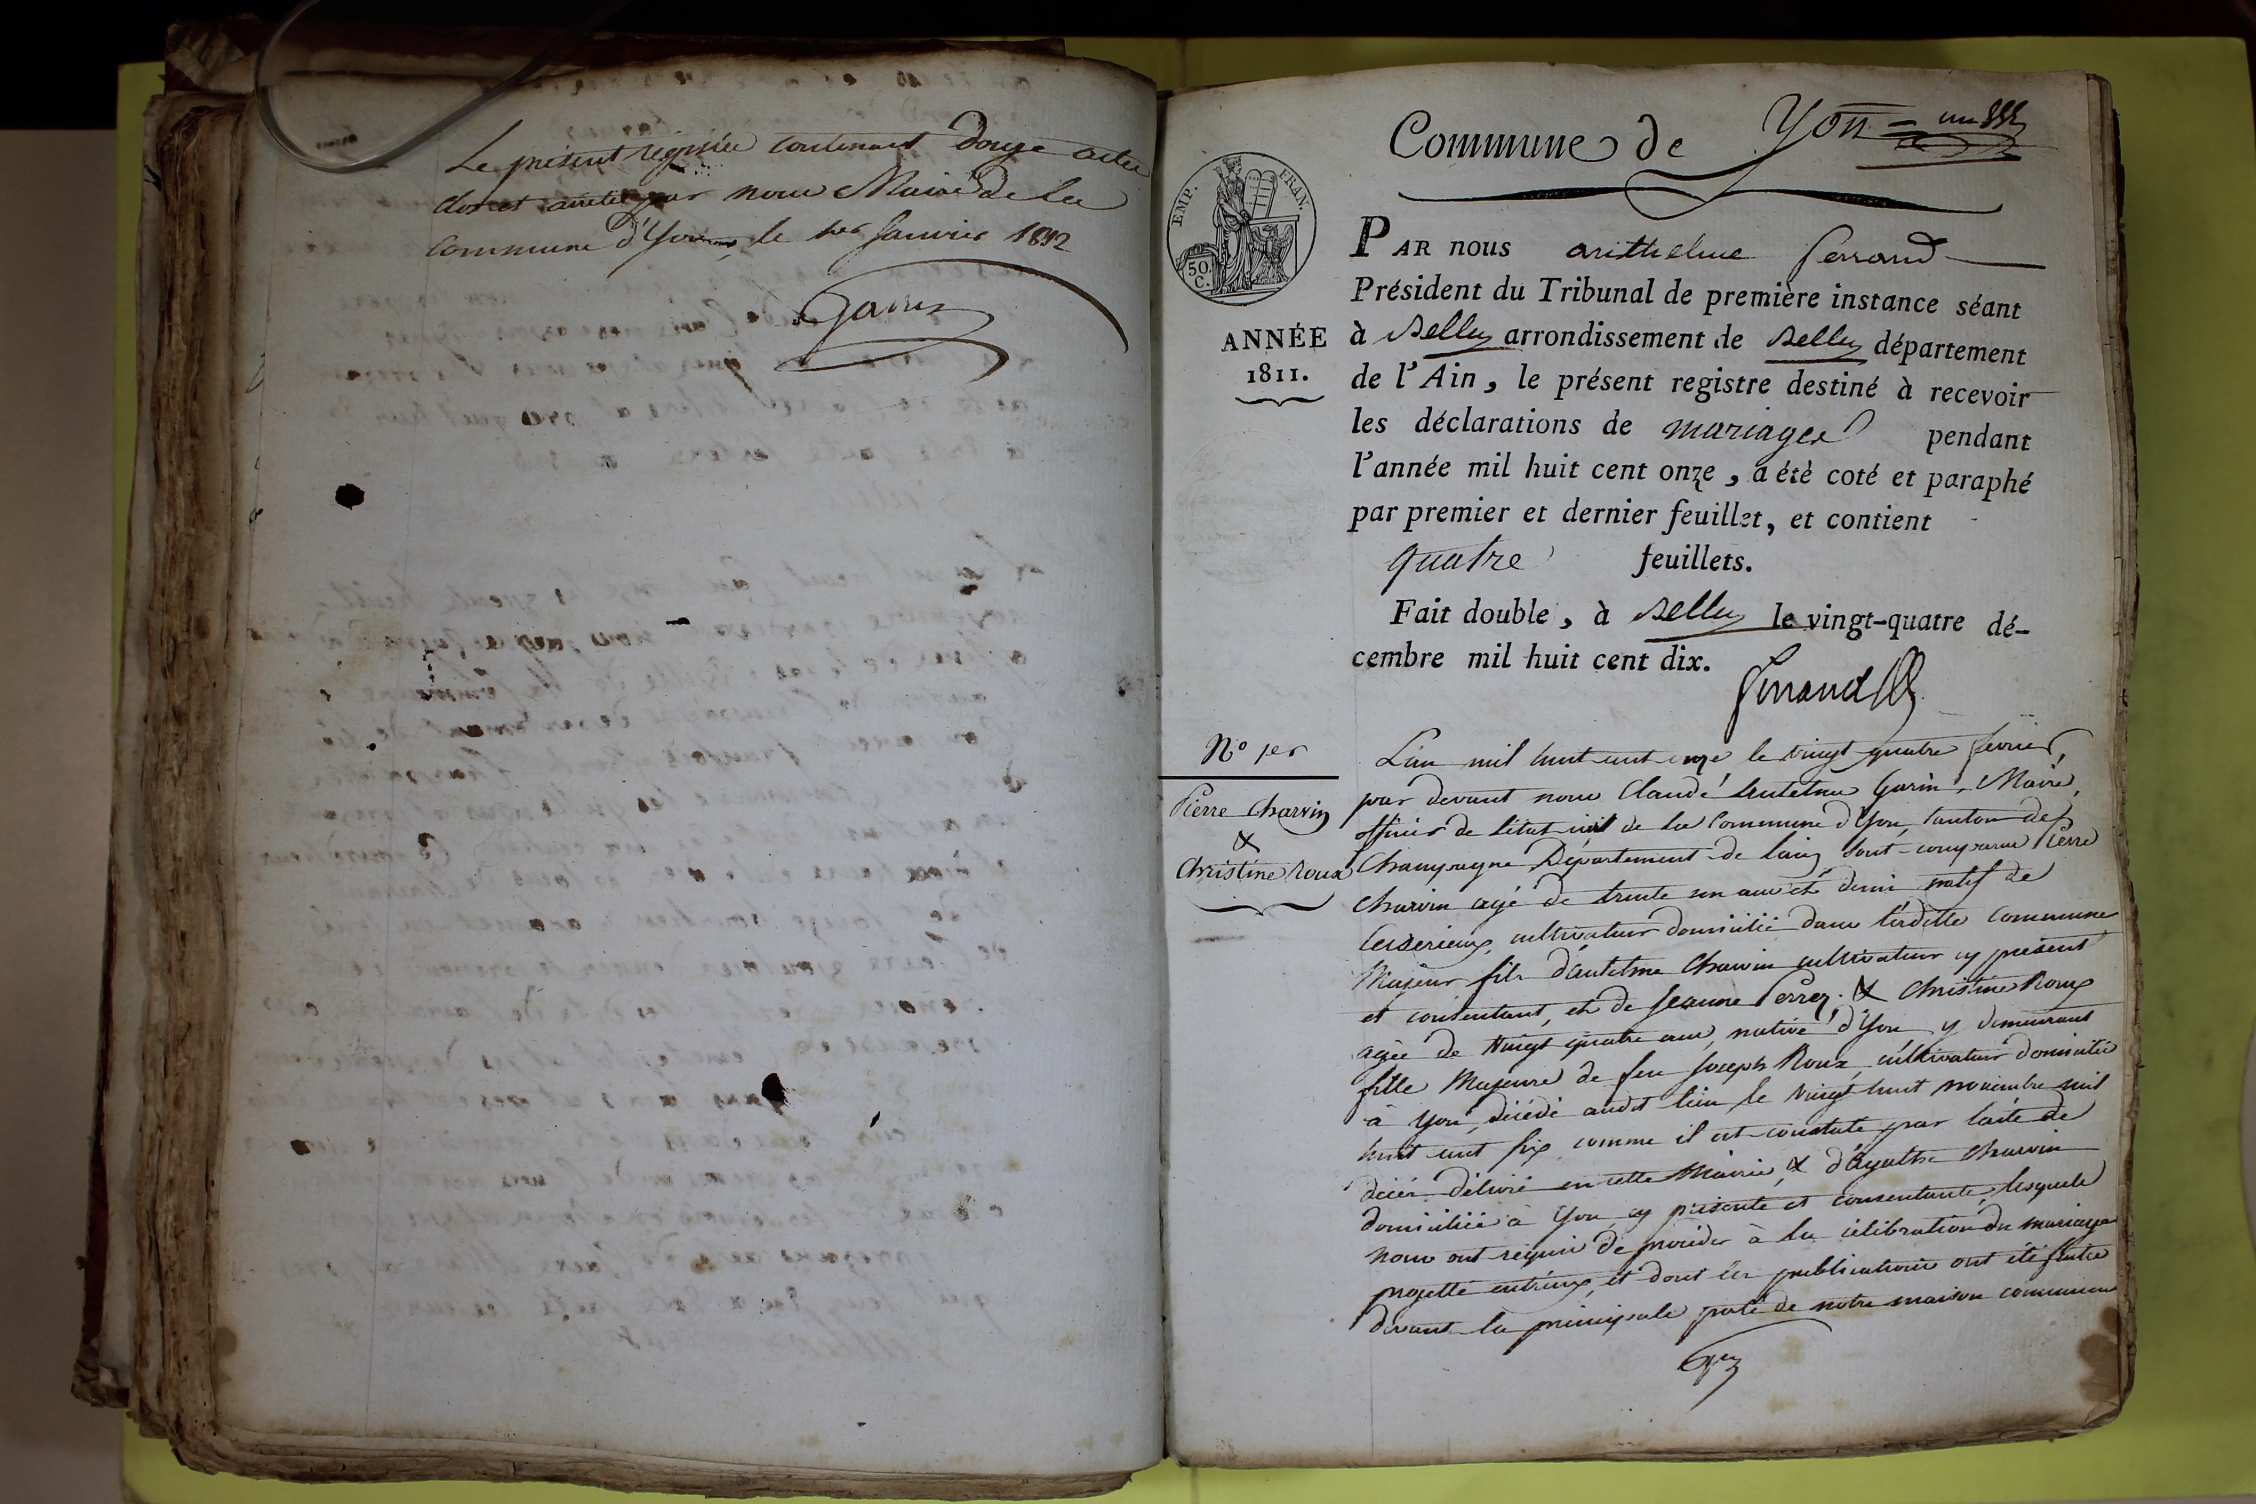 Le présent registre contenant Douze actes
clos et arrêté par nous Maire de la
commune d'Yon, le 1er Janvier 1812
Garin
Commune de Yon = un
EMP. FRAN.
50.
C.
ANNÉE
1811.
PAR nous anthelme ferrand
Président du Tribunal de première instance séant
à Belley arrondissement de Belley département
de l'Ain, le présent registre destiné à recevoir
les déclarations de mariages pendant
l'année mil huit cent onze, a été coté et paraphé
par premier et dernier feuillet, et contient
quatre feuillets.
Fait double, à Belley le vingt-quatre dé-
cembre mil huit cent dix.
ferrand
N° 1er
Pierre Charvin
&
Christine Roux
L'an mil huit cent onze le vingt quatre février,
par devant nous Claude Antelme Garin, Maire,
officier de l'état civil de la Commune d'Yon, Canton de
Champagne Département de l'ain, sont comparus Pierre
Charvin agé de trente un ans et demi natif de
Ceyserieux, cultivateur domicilié dans l'usditte Commune
Majeur fils d'antelme Charvin cultivateur cy présent
et consentant, et de Jeanne Perrez. & Christine Roux
agée de vingt quatre ans, native d'Yon y demeurant
fille Majeure de feu Joseph Roux, cultivateur domicilié
à Yon, décédé audit lieu le vingt huit novembre mil
huit cent six comme il est constaté par l'acte de
décès délivré en cette Mairie, & d'agathe Charvin
domiciliée à Yon cy présente et consentante, lesquels
nous ont requis de procéder à la célébration du mariage
projetté entr'eux, et dont les publications ont été faites
devant la principale porte de notre maison commune